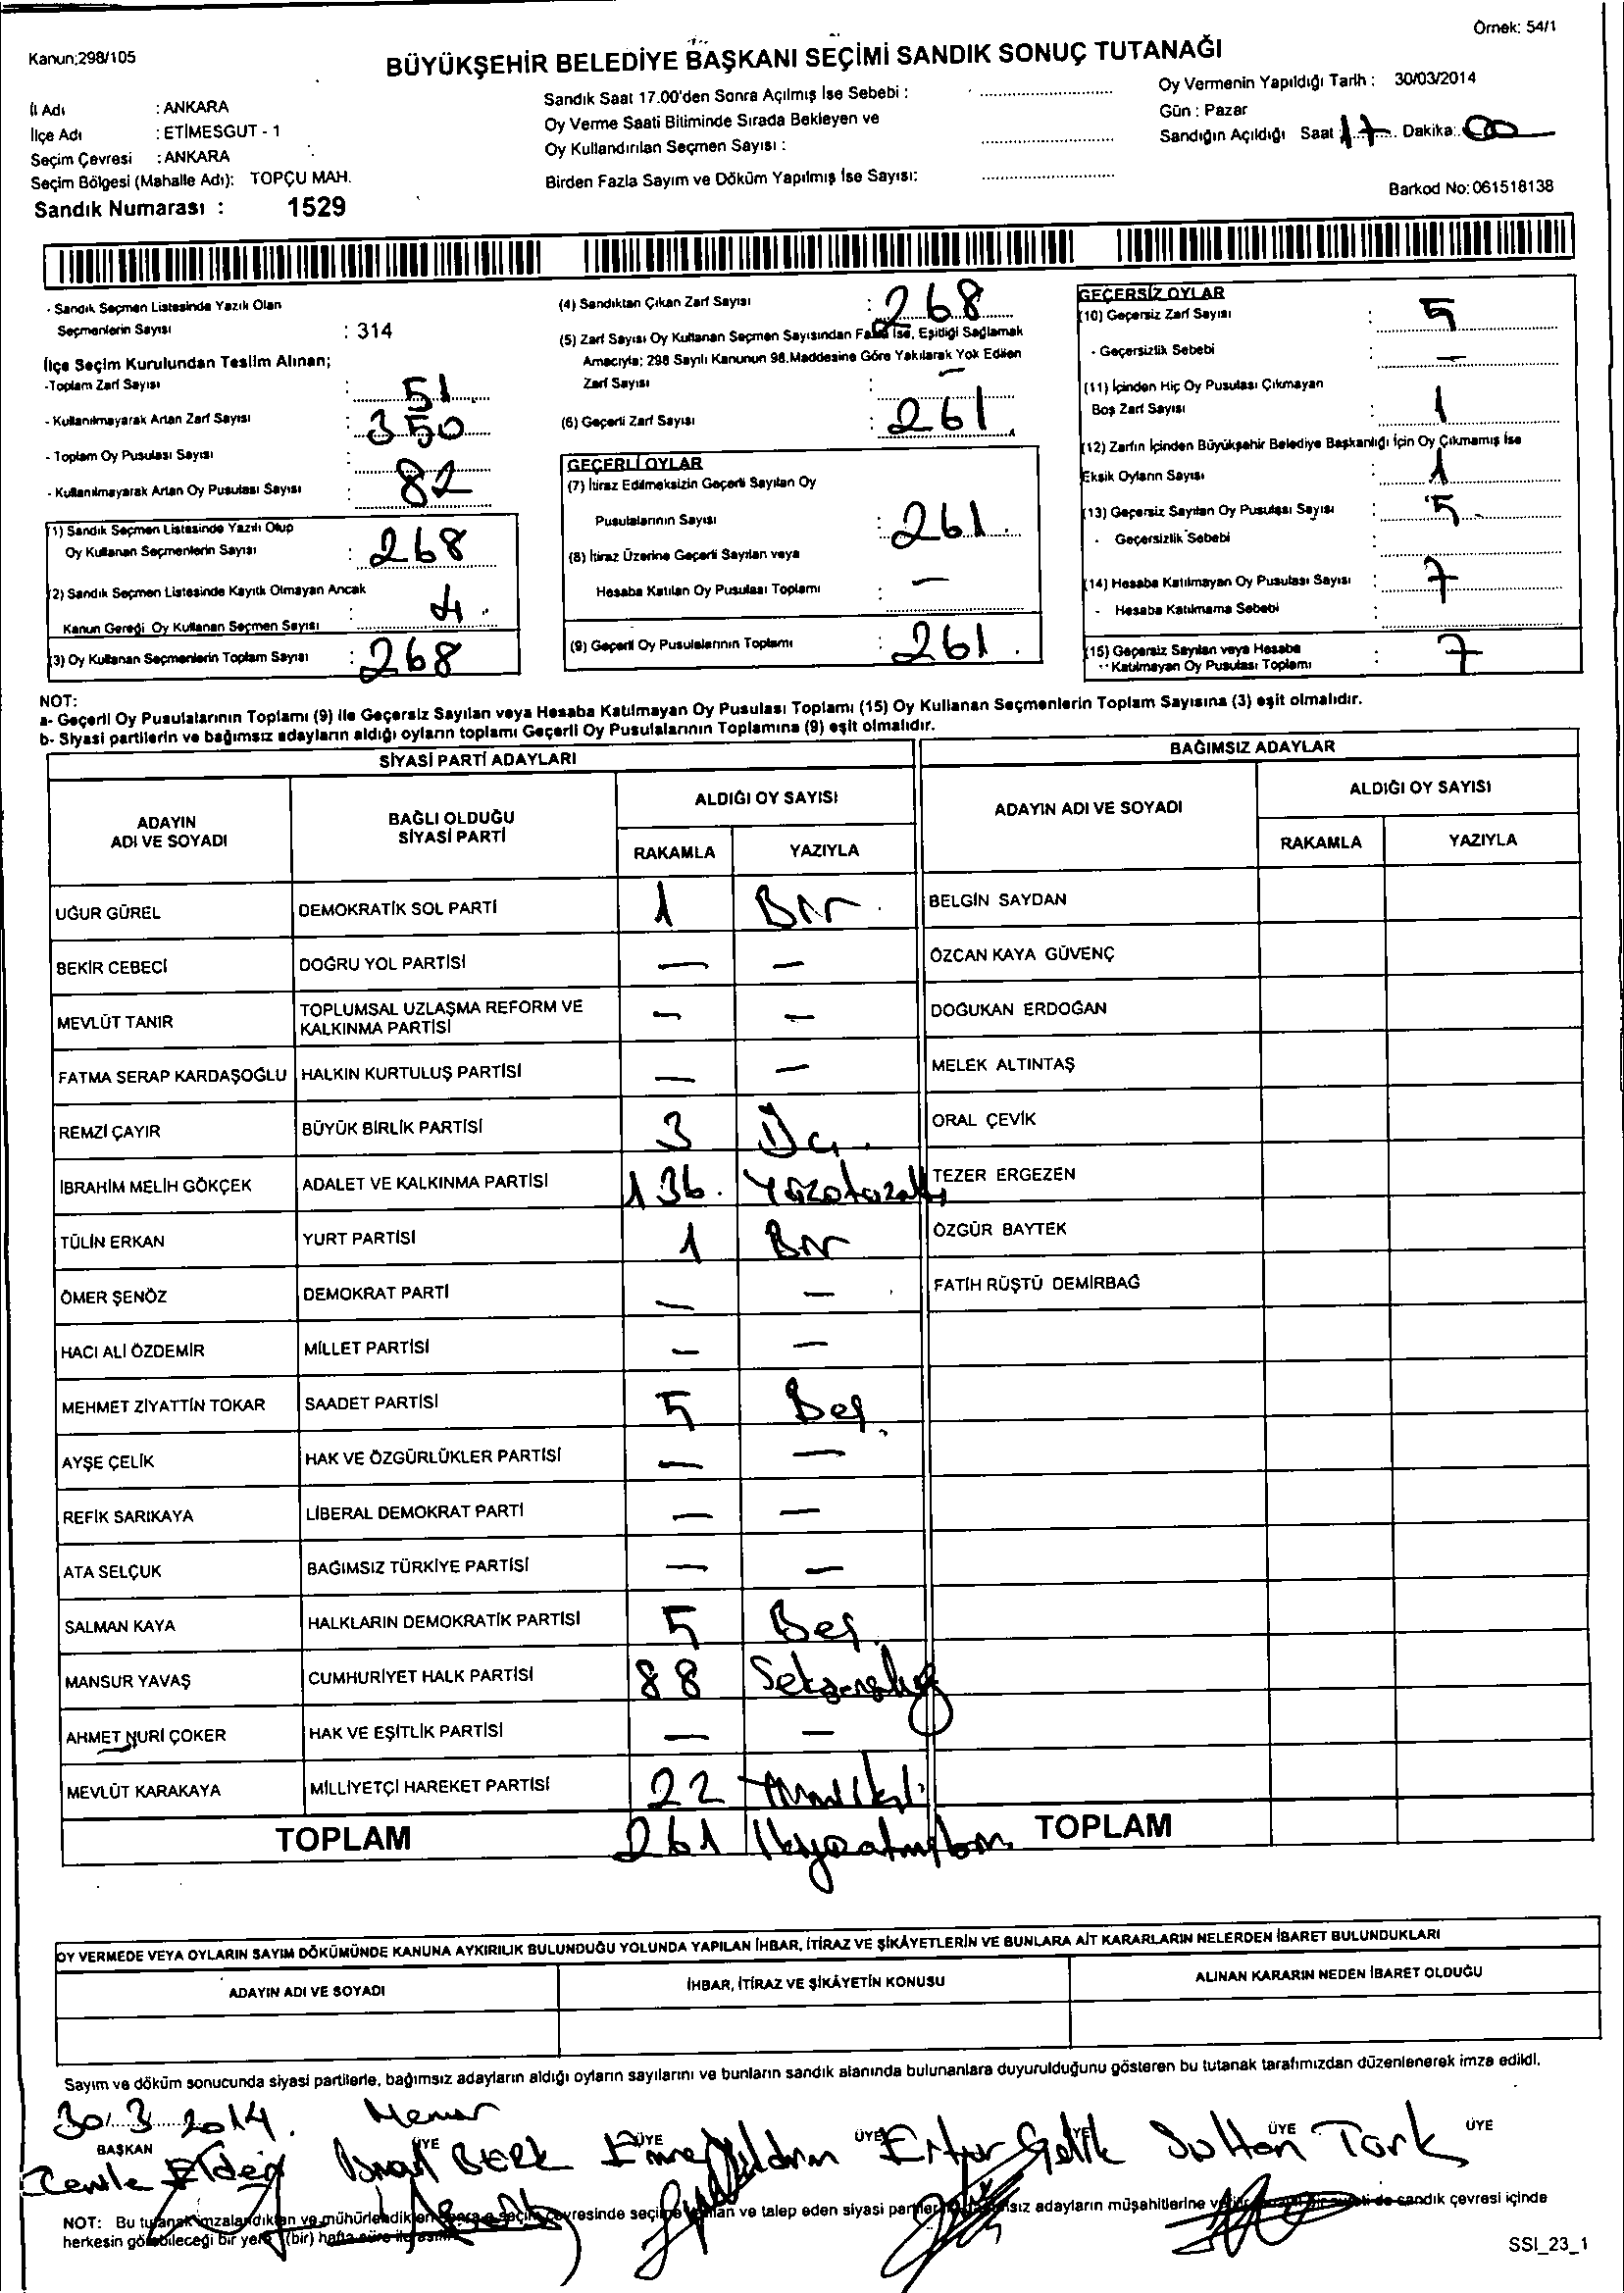 Örnek: 54/1
Kanun;298/105
BÜYÜKŞEHİR BELEDİYE BAŞKANI SEÇİMİ SANDIK SONUÇ TUTANAĞI
İl Adı : ANKARA
İlçe Adı : ETİMESGUT - 1
Seçim Çevresi : ANKARA
Seçim Bölgesi (Mahalle Adı): TOPÇU MAH.
Sandık Numarası : 1529
Sandık Saat 17.00'den Sonra Açılmış İse Sebebi :
Oy Verme Saati Bitiminde Sırada Bekleyen ve
Oy Kullandırılan Seçmen Sayısı :
Birden Fazla Sayım ve Döküm Yapılmış İse Sayısı:
Oy Vermenin Yapıldığı Tarih : 30/03/2014
Gün : Pazar
Sandığın Açıldığı Saat 17 Dakika: 00
Barkod No: 061518138
- Sandık Seçmen Listesinde Yazılı Olan
Seçmenlerin Sayısı : 314
İlçe Seçim Kurulundan Teslim Alınan;
-Toplam Zarf Sayısı : 51
- Kullanılmayarak Artan Zarf Sayısı : 350
- Toplam Oy Pusulası Sayısı :
- Kullanılmayarak Artan Oy Pusulası Sayısı : 82
(1) Sandık Seçmen Listesinde Yazılı Olup
Oy Kullanan Seçmenlerin Sayısı : 268
(2) Sandık Seçmen Listesinde Kayıtlı Olmayan Ancak
Kanun Gereği Oy Kullanan Seçmen Sayısı : 4
(3) Oy Kullanan Seçmenlerin Toplam Sayısı : 268
(4) Sandıktan Çıkan Zarf Sayısı : 268
(5) Zarf Sayısı Oy Kullanan Seçmen Sayısından Fazla İse, Eşitliği Sağlamak
Amacıyla; 298 Sayılı Kanunun 98.Maddesine Göre Yakılarak Yok Edilen
Zarf Sayısı : —
(6) Geçerli Zarf Sayısı : 261
GEÇERLİ OYLAR
(7) İtiraz Edilmeksizin Geçerli Sayılan Oy
Pusulalarının Sayısı : 261
(8) İtiraz Üzerine Geçerli Sayılan veya
Hesaba Katılan Oy Pusulası Toplamı : —
(9) Geçerli Oy Pusulalarının Toplamı : 261
GEÇERSİZ OYLAR
(10) Geçersiz Zarf Sayısı : 5
- Geçersizlik Sebebi : —
(11) İçinden Hiç Oy Pusulası Çıkmayan
Boş Zarf Sayısı : 1
(12) Zarfın İçinden Büyükşehir Belediye Başkanlığı İçin Oy Çıkmamış İse
Eksik Oyların Sayısı : 1
(13) Geçersiz Sayılan Oy Pusulası Sayısı : 5
- Geçersizlik Sebebi :
(14) Hesaba Katılmayan Oy Pusulası Sayısı : 7
- Hesaba Katılmama Sebebi :
(15) Geçersiz Sayılan veya Hesaba
Katılmayan Oy Pusulası Toplamı : 7
NOT:
a- Geçerli Oy Pusulalarının Toplamı (9) ile Geçersiz Sayılan veya Hesaba Katılmayan Oy Pusulası Toplamı (15) Oy Kullanan Seçmenlerin Toplam Sayısına (3) eşit olmalıdır.
b- Siyasi partilerin ve bağımsız adayların aldığı oyların toplamı Geçerli Oy Pusulalarının Toplamına (9) eşit olmalıdır.
SİYASİ PARTİ ADAYLARI
ADAYIN ADI VE SOYADI BAĞLI OLDUĞU SİYASİ PARTİ ALDIĞI OY SAYISI
RAKAMLA YAZIYLA
UĞUR GÜREL DEMOKRATİK SOL PARTİ 1 Bir
BEKİR CEBECİ DOĞRU YOL PARTİSİ — —
MEVLÜT TANIR TOPLUMSAL UZLAŞMA REFORM VE KALKINMA PARTİSİ — —
FATMA SERAP KARDAŞOĞLU HALKIN KURTULUŞ PARTİSİ — —
REMZİ ÇAYIR BÜYÜK BİRLİK PARTİSİ 3 Üç
İBRAHİM MELİH GÖKÇEK ADALET VE KALKINMA PARTİSİ 136 Yüzotuzaltı
TÜLİN ERKAN YURT PARTİSİ 1 Bir
ÖMER ŞENÖZ DEMOKRAT PARTİ — —
HACI ALİ ÖZDEMİR MİLLET PARTİSİ — —
MEHMET ZİYATTİN TOKAR SAADET PARTİSİ 5 Beş
AYŞE ÇELİK HAK VE ÖZGÜRLÜKLER PARTİSİ — —
REFİK SARIKAYA LİBERAL DEMOKRAT PARTİ — —
ATA SELÇUK BAĞIMSIZ TÜRKİYE PARTİSİ — —
SALMAN KAYA HALKLARIN DEMOKRATİK PARTİSİ 5 Beş
MANSUR YAVAŞ CUMHURİYET HALK PARTİSİ 88 Seksensekiz
AHMET NURİ ÇOKER HAK VE EŞİTLİK PARTİSİ — —
MEVLÜT KARAKAYA MİLLİYETÇİ HAREKET PARTİSİ 22 Yirmiiki
TOPLAM 261 İkiyüzatmışbir
BAĞIMSIZ ADAYLAR
ADAYIN ADI VE SOYADI ALDIĞI OY SAYISI
RAKAMLA YAZIYLA
BELGİN SAYDAN
ÖZCAN KAYA GÜVENÇ
DOĞUKAN ERDOĞAN
MELEK ALTINTAŞ
ORAL ÇEVİK
TEZER ERGEZEN
ÖZGÜR BAYTEK
FATİH RÜŞTÜ DEMİRBAĞ
TOPLAM
OY VERMEDE VEYA OYLARIN SAYIM DÖKÜMÜNDE KANUNA AYKIRILIK BULUNDUĞU YOLUNDA YAPILAN İHBAR, İTİRAZ VE ŞİKÂYETLERİN VE BUNLARA AİT KARARLARIN NELERDEN İBARET BULUNDUKLARI
ADAYIN ADI VE SOYADI İHBAR, İTİRAZ VE ŞİKÂYETİN KONUSU ALINAN KARARIN NEDEN İBARET OLDUĞU
Sayım ve döküm sonucunda siyasi partilerle, bağımsız adayların aldığı oyların sayılarını ve bunların sandık alanında bulunanlara duyurulduğunu gösteren bu tutanak tarafımızdan düzenlenerek imza edildi.
30/3/2014 Memur
BAŞKAN ÜYE ÜYE ÜYE ÜYE ÜYE ÜYE
BERK Emre Yıldırım Çelik Sultan Türk
NOT: Bu tutanak imzalandıktan ve mühürlendikten sonra seçim çevresinde seçime katılan ve talep eden siyasi partiler bağımsız adayların müşahitlerine sandık çevresi içinde
herkesin görebileceği bir yere (bir) hafta süre ile
SSI_23_1